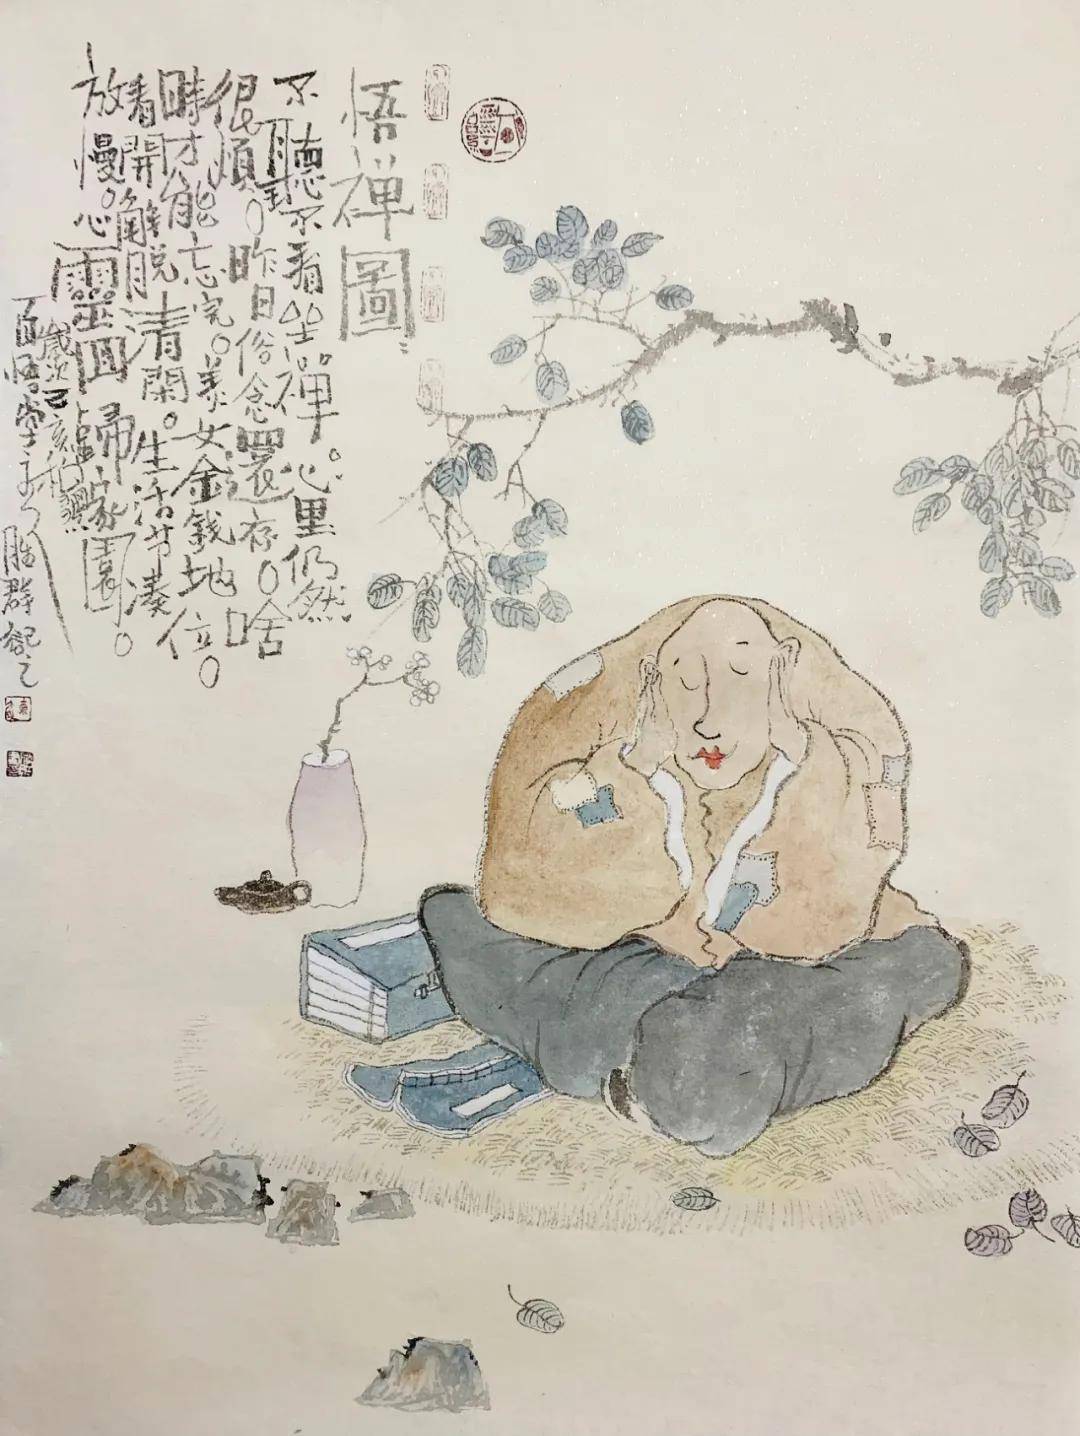 悟禅圖
不聽不看坐禅。心里仍然
很煩。昨日俗念還存。啥
時才能忘完。美女金錢地位。
看開解脱清閑。生活节凑
放慢。心靈回歸家園。
歲次己亥
百悟堂主人胜群記之